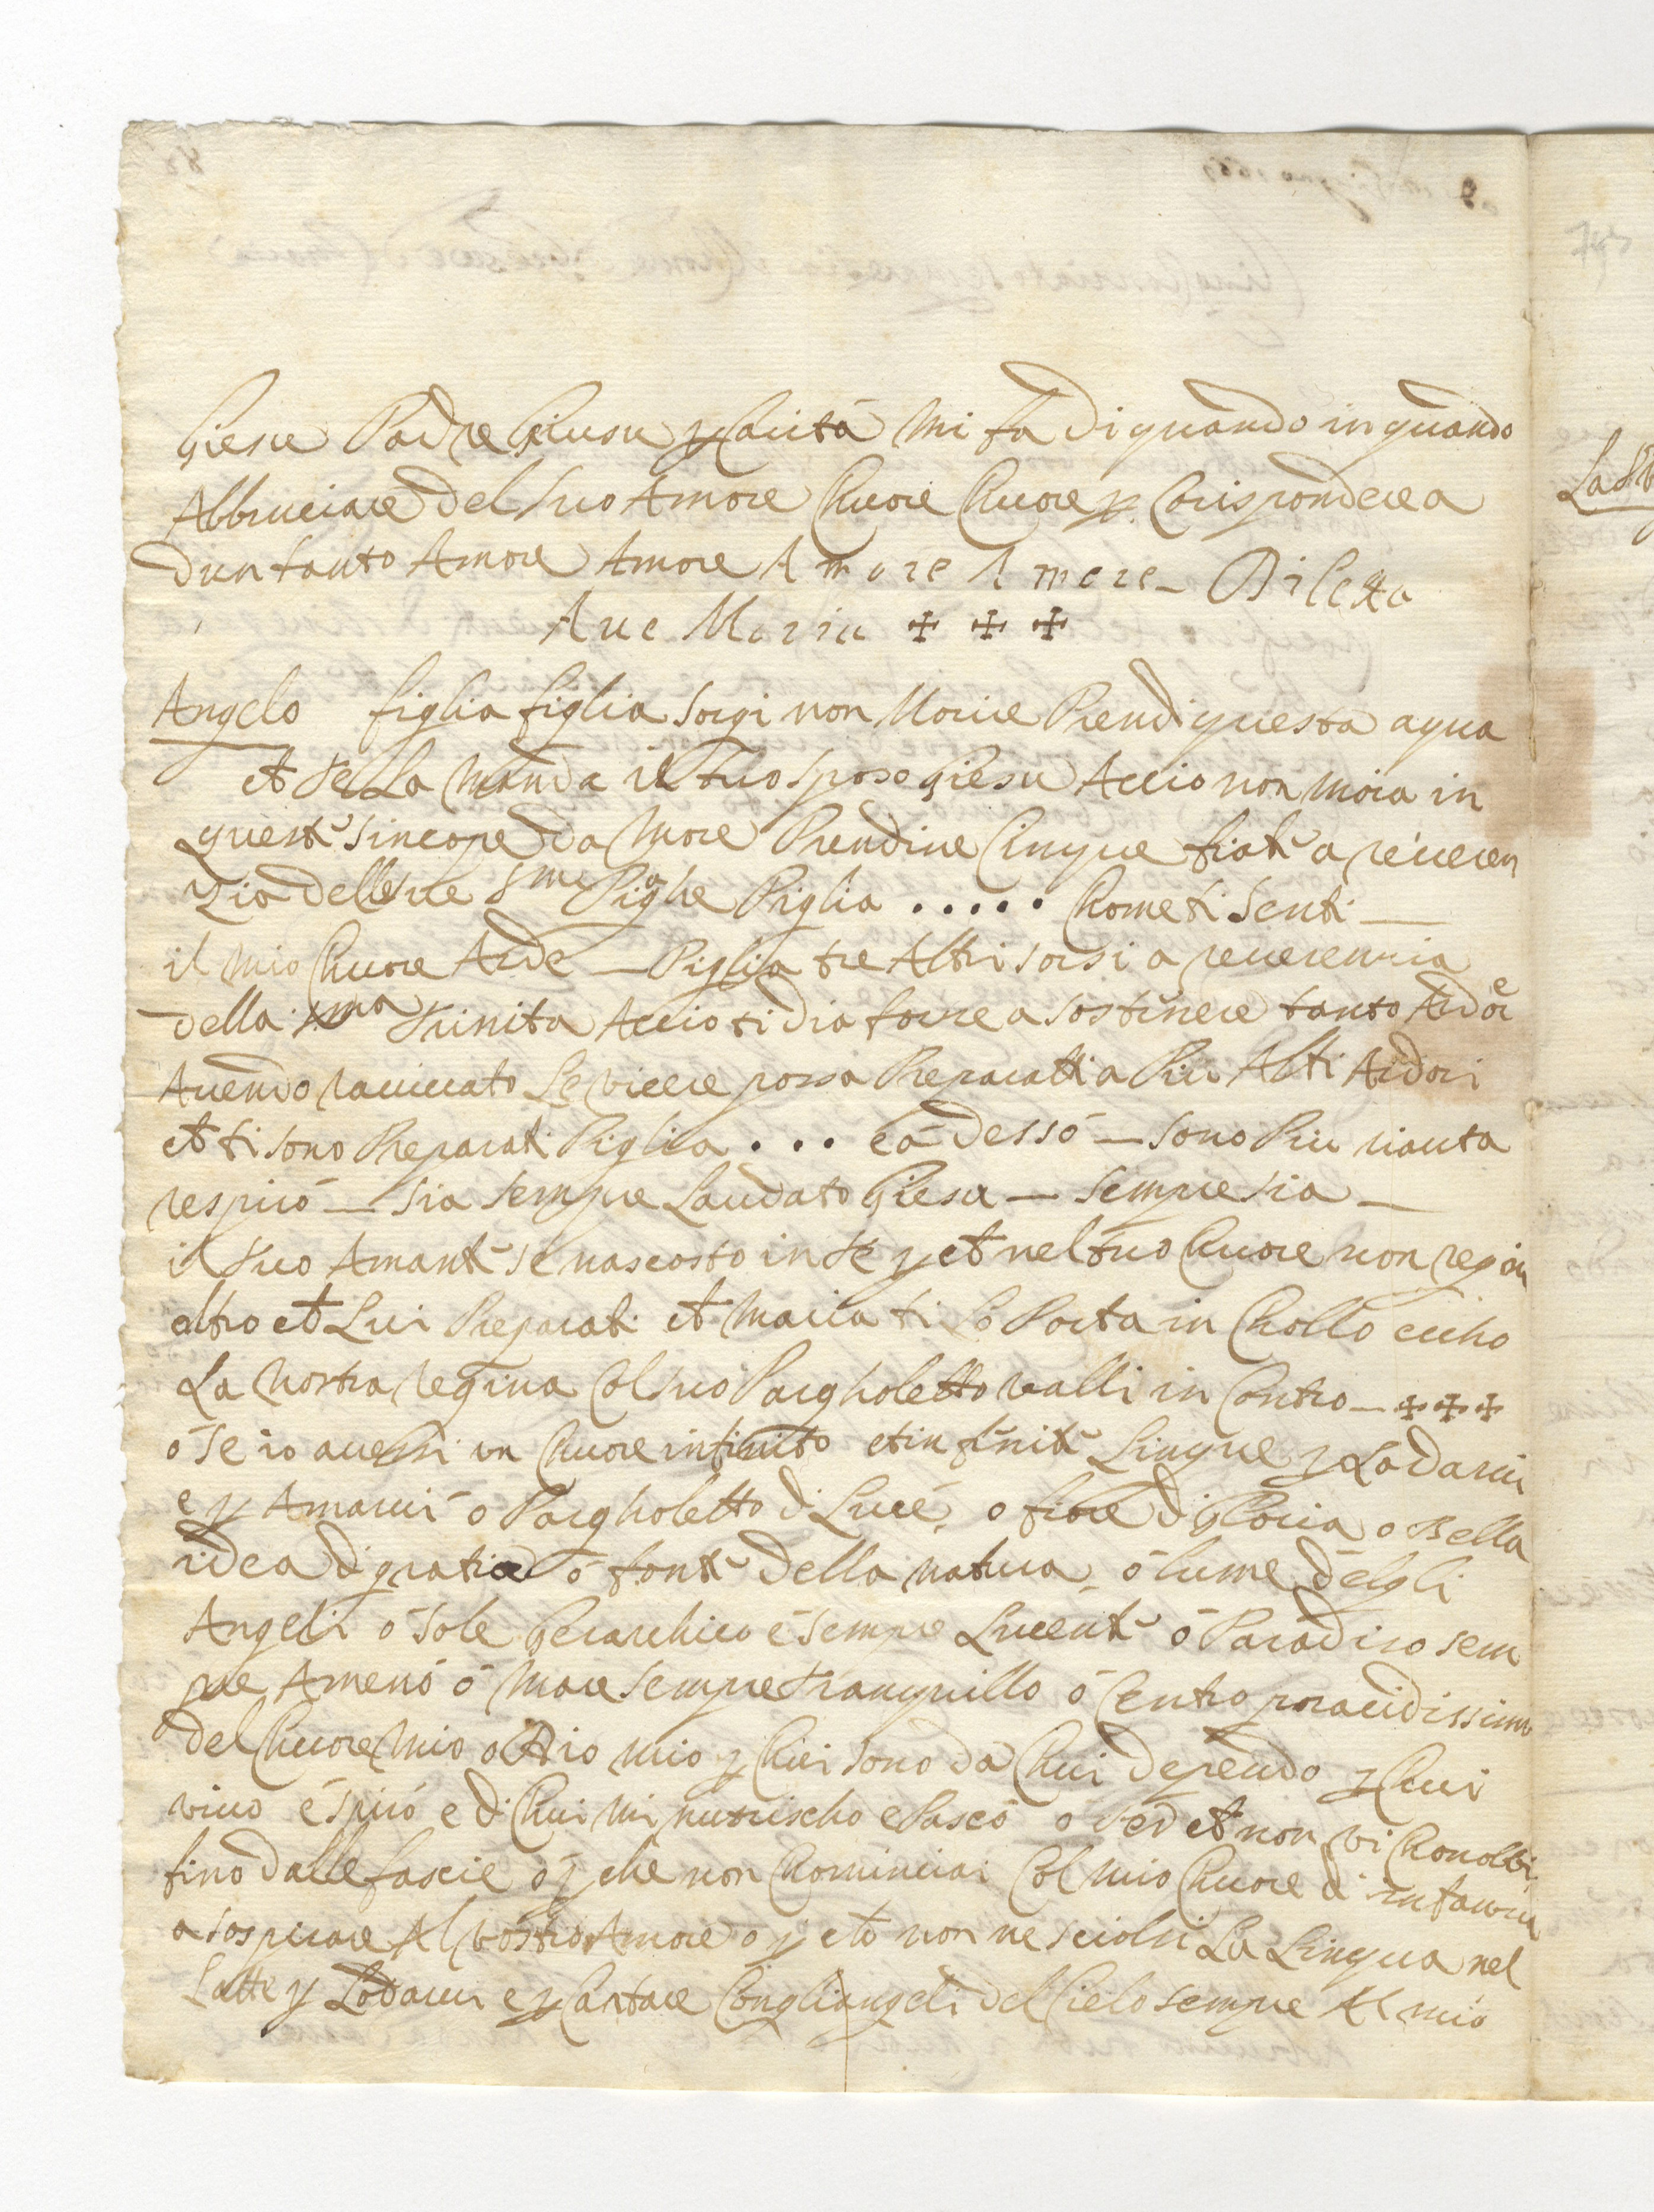 Giesu Padre Giusu p Carità mi fa di quando in quando
Abbruciare del suo Amore Cuore Cuore p Corispondere a
dun tanto Amore Amore Amore Amore – Diletta
Ave Maria ✠ ✠ ✠
Angelo figlia figlia sorgi non Morire Prendi questa aqua
et te La Manda il tuo sposo Giesu Accio non mora in
questa sincope da More Prendine Cinque fiate a reveren
zia delle sue sme Piaghe Piglia . . . . . Come ti senti —
il mio Cuore Arde — Piglia tre Altri sorsi a reverennia
della sma Trinita Accio ti dia forze a sostinere tanto Ardore
Avendo raviuato Le vicere possa Preparatti a Piu Alti Ardori
et ti sono Preparati Piglia . . . e á desso — sono Piu riauta
respiró — sia sempre Laudato Giesu — sempre sia —
il tuo Amante se nascosto in te p et nel tuo Cuore non regni
altro et Lui Preparati et Maria ti Lo Porta in Chollo eccho
La nostra regina Col suo Pargholetto valli in Contro — ✠ ✠ ✠
ó se io avessi un Cuore infinito et infinite Lingue p Lodarvi
e p Amarvi ó Pargholetto di Lucé, o fiore di Gloria o Bella
idea di gratia ó fonte della natura, ó lume delgli
Angeli ó sole Gerarchico é sempre Lucente ó Paradiso sem
pre Amenó ó Mare sempre tranquillo ó Centro placidissimo
del Cuore Mio o Dio mio p Chui sono da Chui dependo p Chui
vivo é spiró e di Chui mi nutrischo e Pascó o Per et non vi Conobbi
fino dalle fascie ó p che non Cominciai Col mio Cuore di infantia
a sospirare Al vostro Amore o p che non ne sciolsi La Lingua nel
Latte p Lodarvi e p Cantare Congliangeli del Cielo sempre Al mió